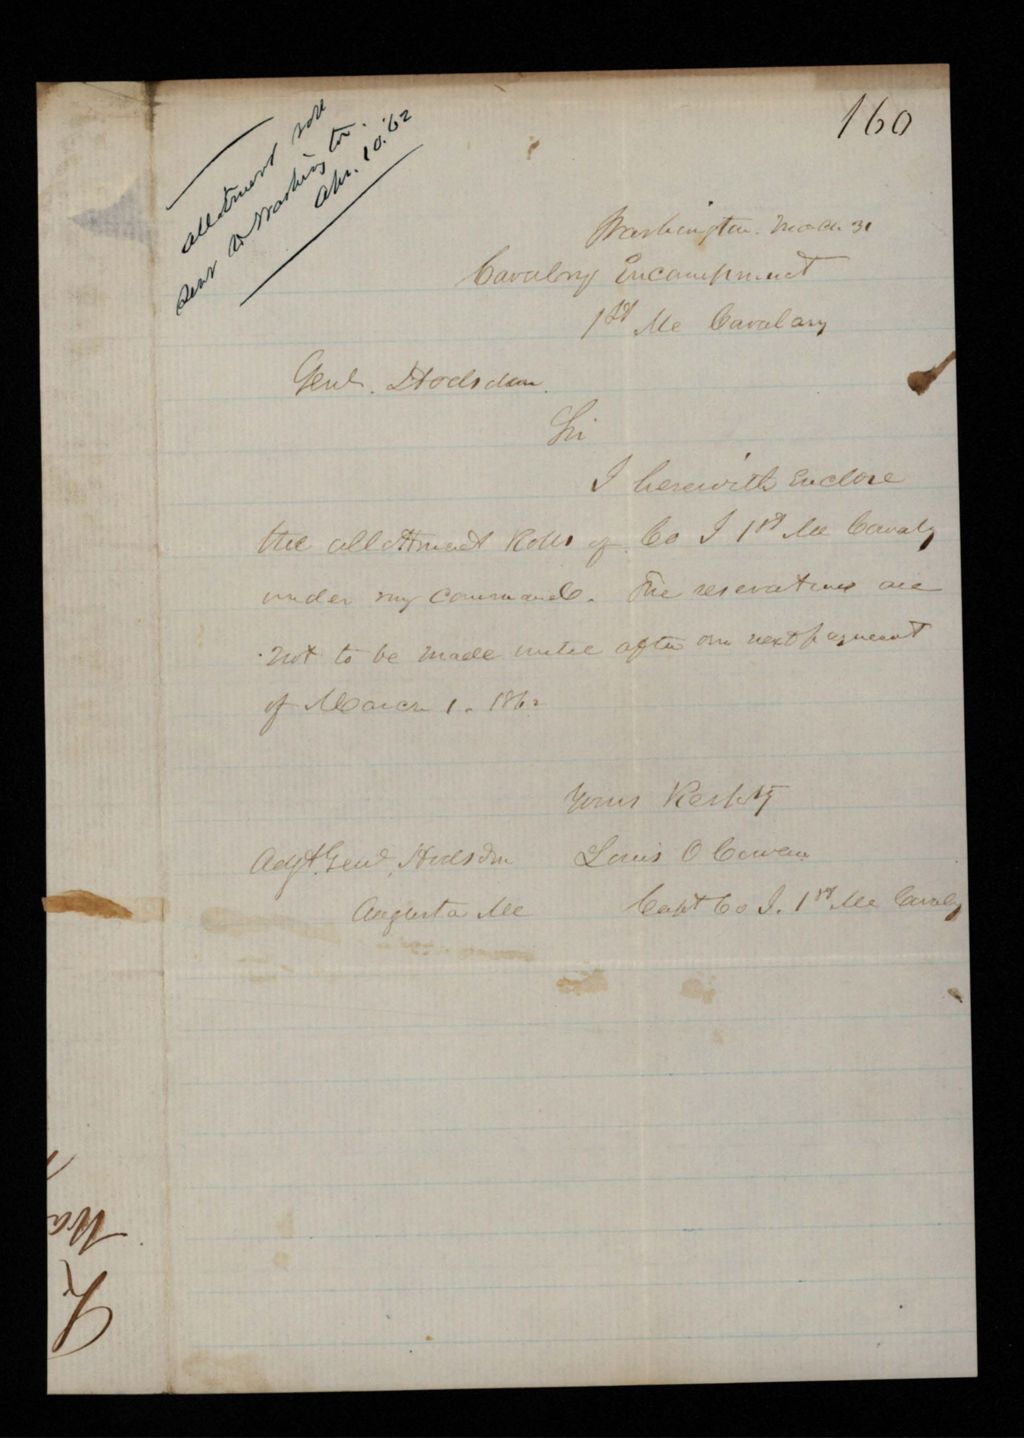 160
allotment roll
sent to Washington.
Apr. 10. '62
Washington. March 31
Cavalry Encampment
1st Me Cavalary
Genl. Hodsdon.
Sir
I herewith Enclose
the allottment Rolls of Co I 1st Me Cavalry
under my command. The reservations are
not to be made untill after our next payment
of March 1. 1862
Yours Respty
Adjt. Genl. Hodsdon
Louis O Cowan
Augusta Me
Capt Co I. 1st Me Cavalry